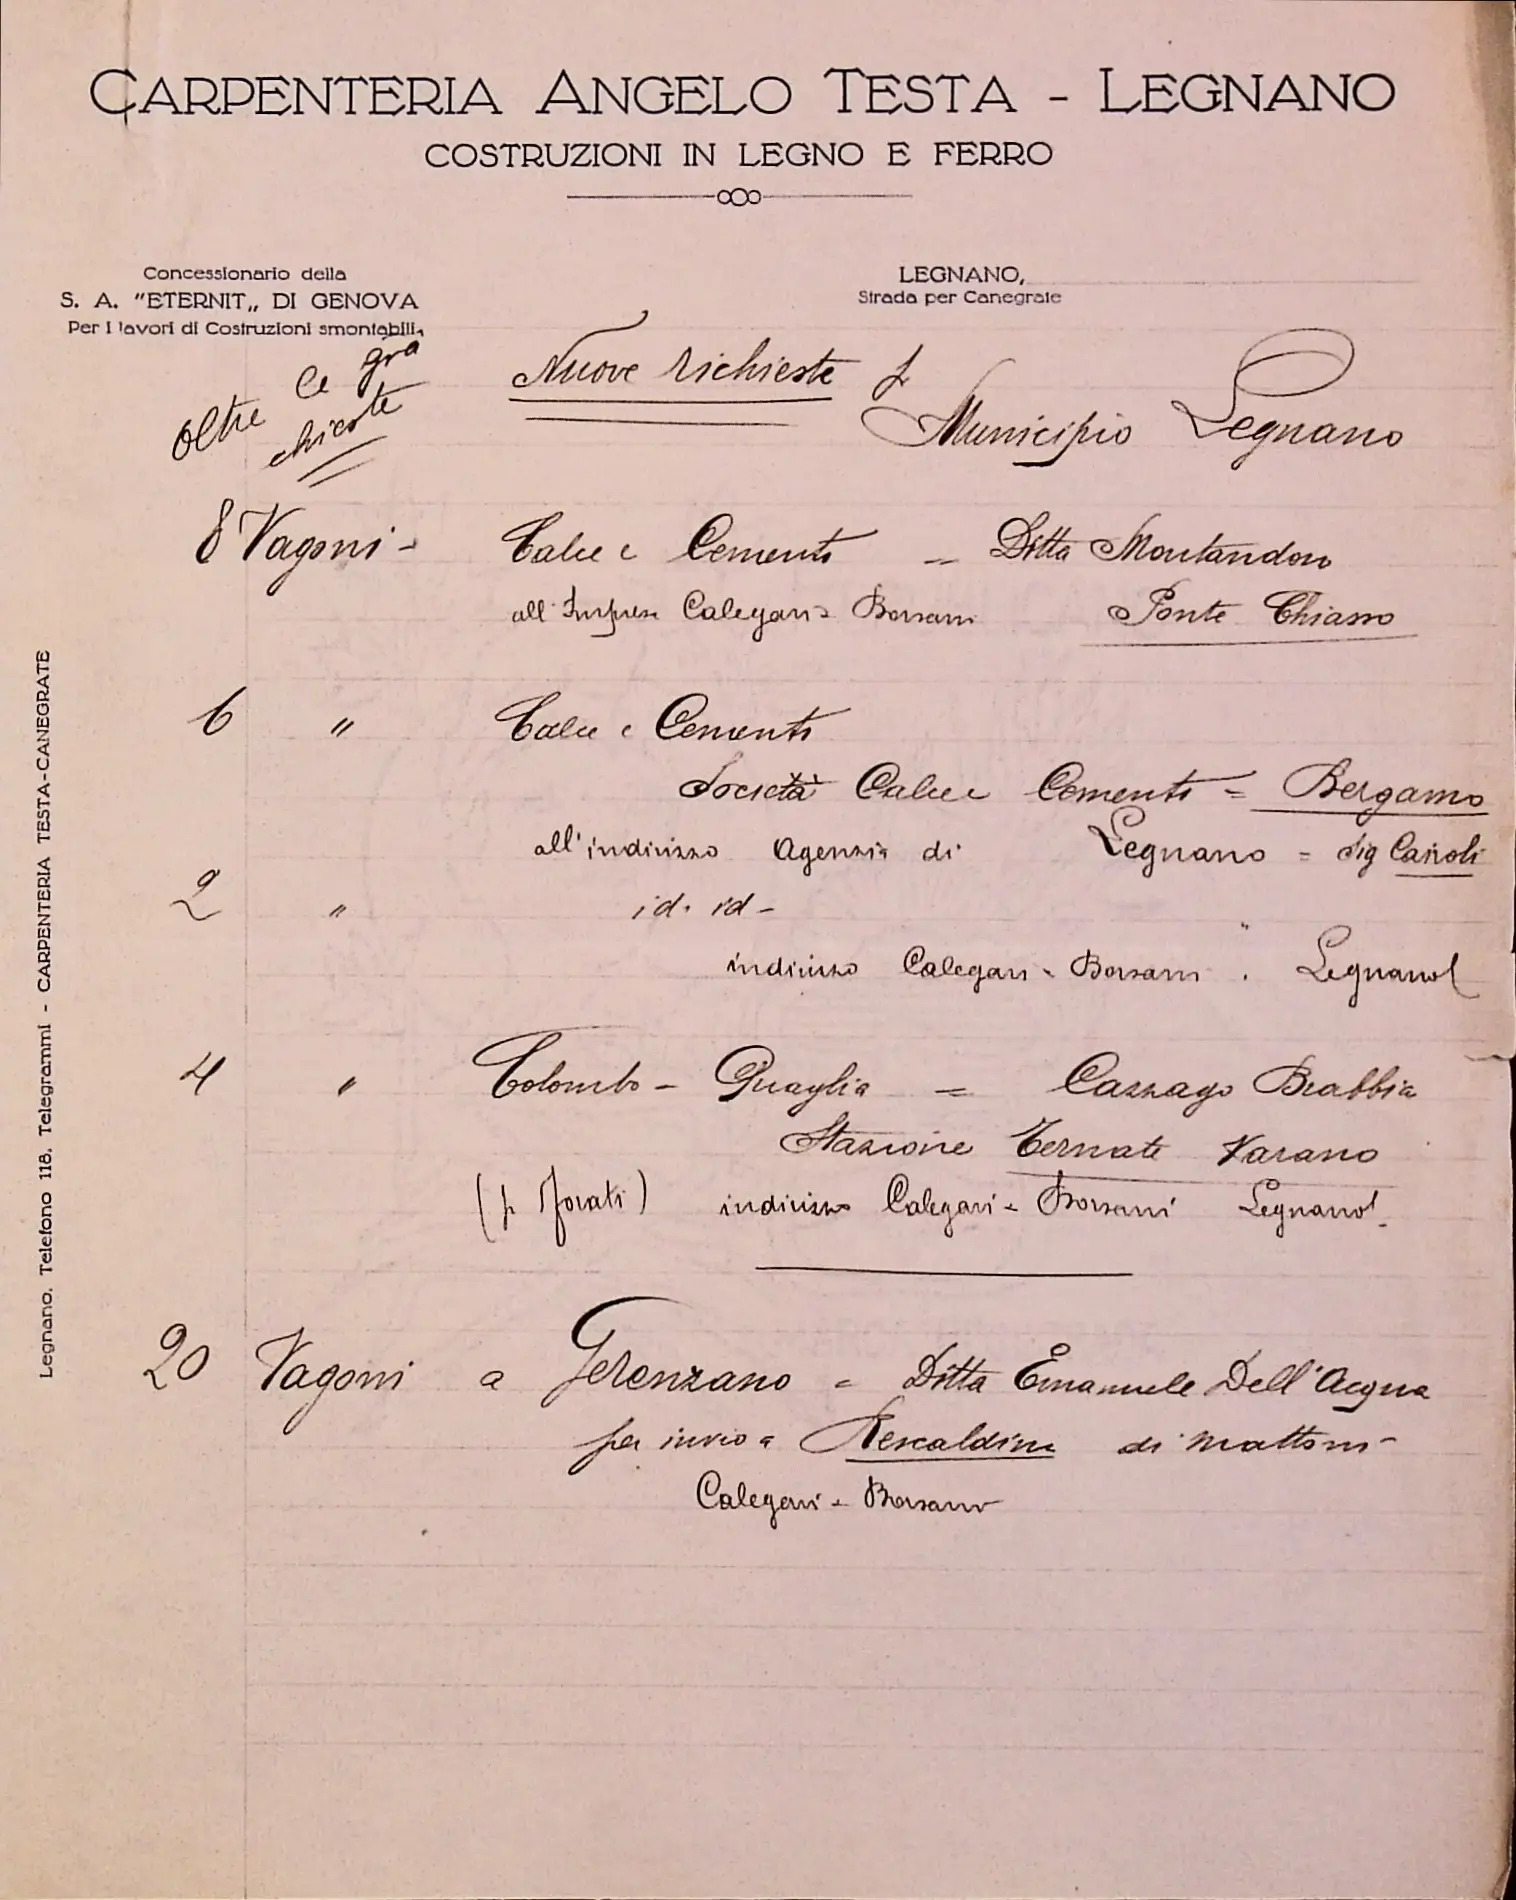 CARPENTERIA ANGELO TESTA - LEGNANO
COSTRUZIONI IN LEGNO E FERRO
Concessionario della
S. A. "ETERNIT„ DI GENOVA
Per i lavori di Costruzioni smontabili
LEGNANO,
Strada per Canegrate
oltre le già
chieste
Nuove richieste p
Municipio Legnano
8 Vagoni - Calce e Cementi = Ditta Montandon
all'Impresa Calegari = Borsani Ponte Chiasso
6 " Calce e Cementi
Società Calce e Cementi = Bergamo
all'indirizzo Agenzia di Legnano = Sig Cairoli
2 " id. id -
indirizzo Calegari - Borsani . Legnano
4 " Colombo - Quaglia = Cazzago Brabbia
Stazione Ternate Varano
(p forati) indirizzo Calegari - Borsani Legnano
20 Vagoni a Gerenzano = Ditta Emanuele Dell'Acqua
per invio a Rescaldina di mattoni -
Calegari - Borsani
Legnano. Telefono 118. Telegrammi - CARPENTERIA TESTA-CANEGRATE